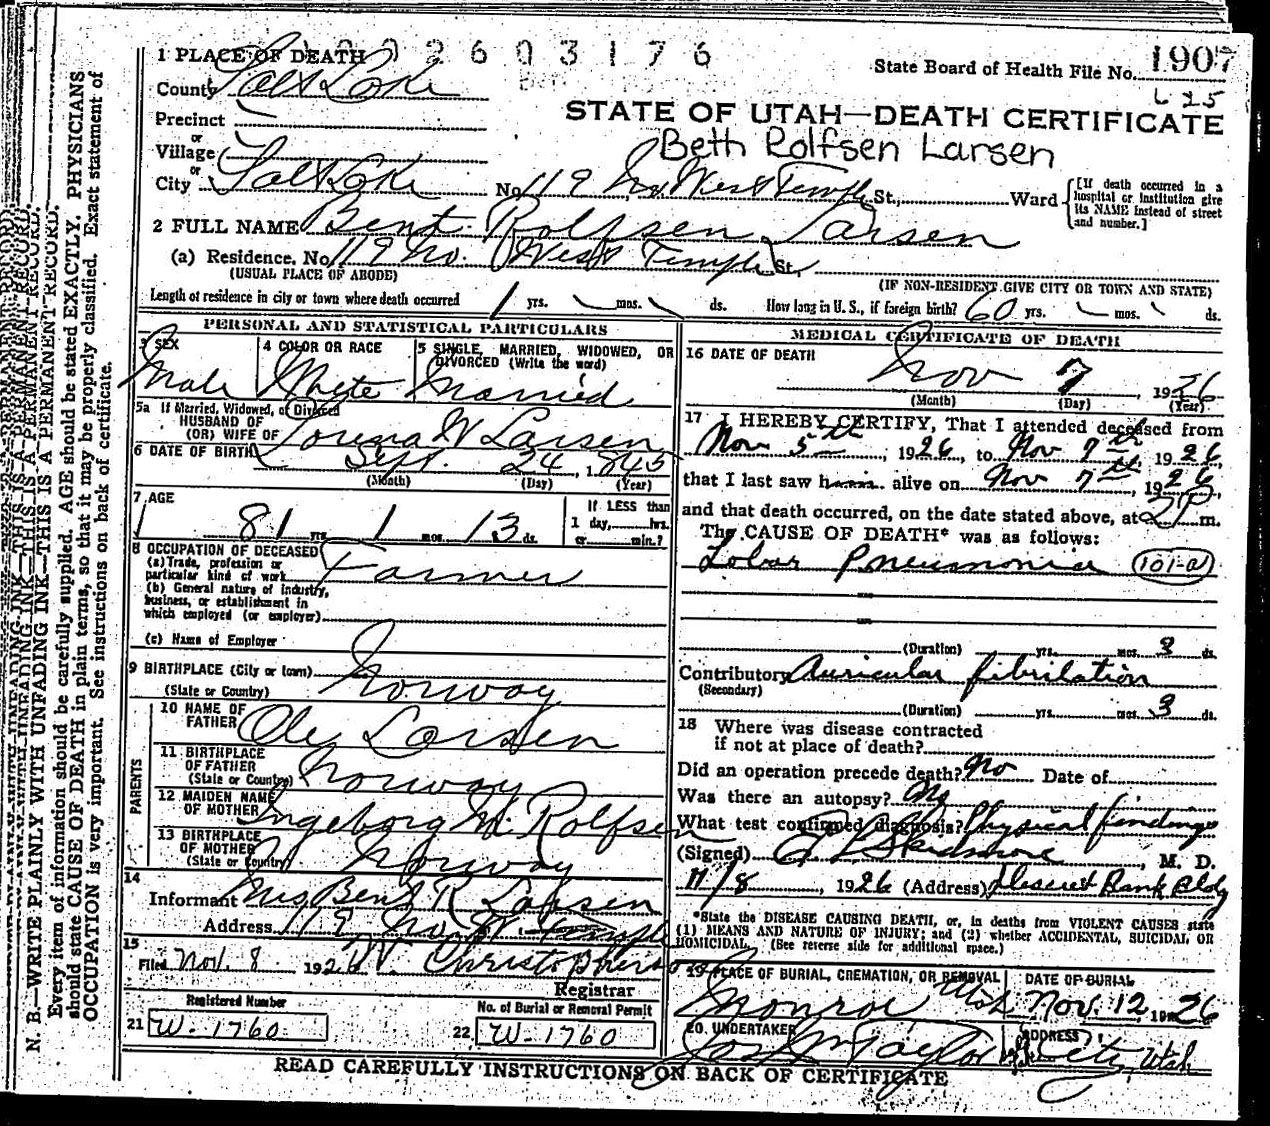 1002603176
1 PLACE OF DEATH
State Board of Health File No. 1907
625
County Salt Lake
STATE OF UTAH—DEATH CERTIFICATE
Precinct
or
Beth Rolfsen Larsen
Village
or
City Salt Lake No. 119 No. West Temple St., Ward
[If death occurred in a hospital or institution give its NAME instead of street and number.]
2 FULL NAME Bent Rolfsen Larsen
(a) Residence. No. 119 No. West Temple St.,
(USUAL PLACE OF ABODE) (IF NON-RESIDENT GIVE CITY OR TOWN AND STATE)
Length of residence in city or town where death occurred 1 yrs. mos. ds. How long in U. S., if foreign birth? 60 yrs. mos. ds.
PERSONAL AND STATISTICAL PARTICULARS
3 SEX
Male
4 COLOR OR RACE
White
5 SINGLE, MARRIED, WIDOWED, OR
DIVORCED (Write the word)
Married
5a If Married, Widowed, or Divorced
HUSBAND OF
(OR) WIFE OF Lorena W Larsen
6 DATE OF BIRTH Sept. 24, 1845
(Month) (Day) (Year)
7 AGE
81 yrs. 1 mos. 13 ds.
If LESS than
1 day, hrs.
or min.?
8 OCCUPATION OF DECEASED
(a) Trade, profession or
particular kind of work Farmer
(b) General nature of industry,
business, or establishment in
which employed (or employer)
(c) Name of Employer
9 BIRTHPLACE (City or town)
(State or Country) Norway
PARENTS
10 NAME OF
FATHER Ole Larsen
11 BIRTHPLACE
OF FATHER
(State or Country) Norway
12 MAIDEN NAME
OF MOTHER Ingeborg M. Rolfsen
13 BIRTHPLACE
OF MOTHER
(State or Country) Norway
14
Informant Mrs Bent R Larsen
Address 119 No. W Temple
15
Filed Nov. 8 1926 W. Christopherson
Registrar
Registered Number
21 W-1760
No. of Burial or Removal Permit
22 W-1760
MEDICAL CERTIFICATE OF DEATH
16 DATE OF DEATH
Nov 7 1926
(Month) (Day) (Year)
17 I HEREBY CERTIFY, That I attended deceased from
Nov 5th, 1926, to Nov 7th 1926,
that I last saw him alive on Nov 7th, 1926,
and that death occurred, on the date stated above, at 2 P. m.
The CAUSE OF DEATH* was as follows:
Lobar Pneumonia 101-a
(Duration) yrs. mos. 3 ds.
Contributory Auricular fibrilation
(Secondary)
(Duration) yrs. mos. 3 ds.
18 Where was disease contracted
if not at place of death?
Did an operation precede death? No Date of
Was there an autopsy? No
What test confirmed diagnosis? Physical findings
(Signed) Skidmore, M. D.
11/8, 1926 (Address) Deseret Bank Bldg
*State the DISEASE CAUSING DEATH, or, in deaths from VIOLENT CAUSES state
(1) MEANS AND NATURE OF INJURY; and (2) whether ACCIDENTAL, SUICIDAL OR
HOMICIDAL. (See reverse side for additional space.)
19 PLACE OF BURIAL, CREMATION, OR REMOVAL
Monroe Utah
DATE OF BURIAL
Nov. 12, 1926
20. UNDERTAKER
Jos Wm Taylor
ADDRESS
City, Utah
READ CAREFULLY INSTRUCTIONS ON BACK OF CERTIFICATE
N. B.—WRITE PLAINLY WITH UNFADING INK—THIS IS A PERMANENT RECORD.
Every item of information should be carefully supplied. AGE should be stated EXACTLY. PHYSICIANS
should state CAUSE OF DEATH in plain terms, so that it may be properly classified. Exact statement of
OCCUPATION is very important. See instructions on back of certificate.